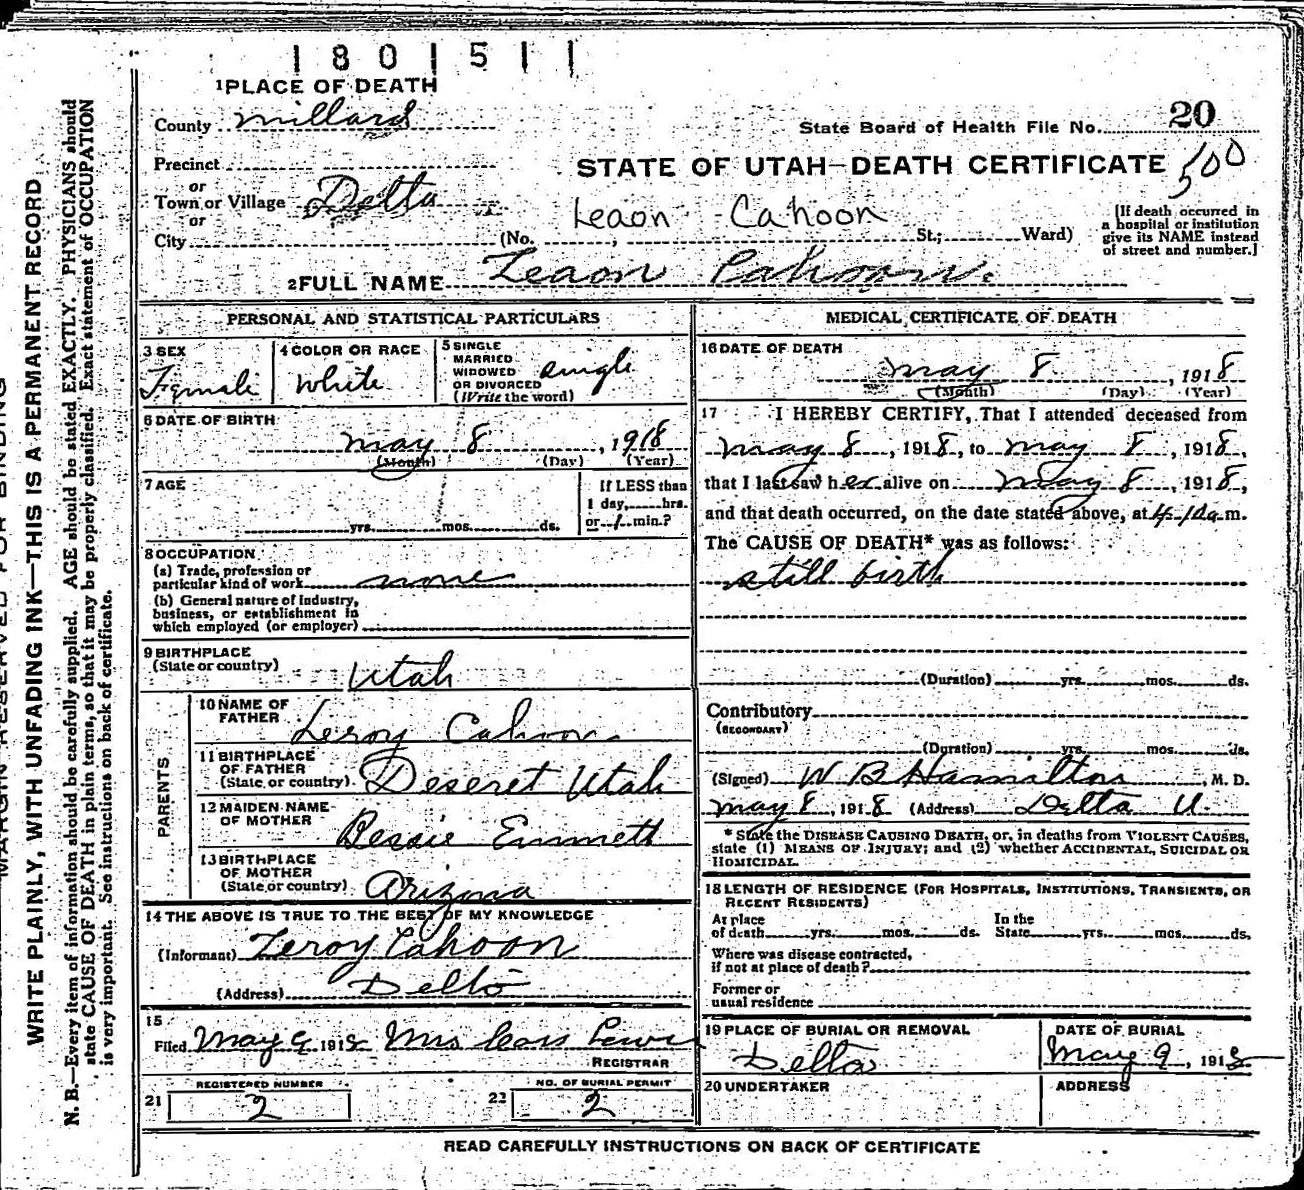 1801511
1 PLACE OF DEATH
County Millard
State Board of Health File No. 20
Precinct
STATE OF UTAH—DEATH CERTIFICATE 500
or
Town or Village Delta
or
Leaon Cahoon
City (No. , St.; Ward)
[If death occurred in
a hospital or institution
give its NAME instead
of street and number.]
2 FULL NAME Leaon Cahoon.
PERSONAL AND STATISTICAL PARTICULARS
3 SEX
Female
4 COLOR OR RACE
White
5 SINGLE
MARRIED
WIDOWED
OR DIVORCED
(Write the word)
single
6 DATE OF BIRTH
May 8, 1918
(Month) (Day) (Year)
7 AGE
yrs. mos. ds.
If LESS than
1 day, hrs.
or 1 min.?
8 OCCUPATION
(a) Trade, profession or
particular kind of work none
(b) General nature of industry,
business, or establishment in
which employed (or employer)
9 BIRTHPLACE
(State or country) Utah
PARENTS
10 NAME OF
FATHER Leroy Cahoon
11 BIRTHPLACE
OF FATHER
(State or country) Deseret Utah
12 MAIDEN NAME
OF MOTHER Bessie Emmett
13 BIRTHPLACE
OF MOTHER
(State or country) Arizona
14 THE ABOVE IS TRUE TO THE BEST OF MY KNOWLEDGE
(Informant) Leroy Cahoon
(Address) Delta
15
Filed May 9 1918 Mrs
REGISTRAR
REGISTERED NUMBER
21 2
NO. OF BURIAL PERMIT
22 2
MEDICAL CERTIFICATE OF DEATH
16 DATE OF DEATH
May 8, 1918
(Month) (Day) (Year)
17 I HEREBY CERTIFY, That I attended deceased from
May 8, 1918, to May 8, 1918,
that I last saw her alive on May 8, 1918,
and that death occurred, on the date stated above, at 4-10 a m.
The CAUSE OF DEATH* was as follows:
still birth
(Duration) yrs. mos. ds.
Contributory
(SECONDARY)
(Duration) yrs. mos. ds.
(Signed) W B Hamilton, M. D.
May 8, 1918 (Address) Delta U.
* State the DISEASE CAUSING DEATH, or, in deaths from VIOLENT CAUSES,
state (1) MEANS OF INJURY; and (2) whether ACCIDENTAL, SUICIDAL OR
HOMICIDAL.
18 LENGTH OF RESIDENCE (FOR HOSPITALS, INSTITUTIONS, TRANSIENTS, OR
RECENT RESIDENTS)
At place
of death yrs. mos. ds.
In the
State yrs. mos. ds.
Where was disease contracted,
if not at place of death?
Former or
usual residence
19 PLACE OF BURIAL OR REMOVAL
Delta
DATE OF BURIAL
May 9, 1918
20 UNDERTAKER
ADDRESS
READ CAREFULLY INSTRUCTIONS ON BACK OF CERTIFICATE
MARGIN RESERVED FOR BINDING
WRITE PLAINLY, WITH UNFADING INK—THIS IS A PERMANENT RECORD
N. B.—Every item of information should be carefully supplied. AGE should be stated EXACTLY. PHYSICIANS should
state CAUSE OF DEATH in plain terms, so that it may be properly classified. Exact statement of OCCUPATION
is very important. See instructions on back of certificate.